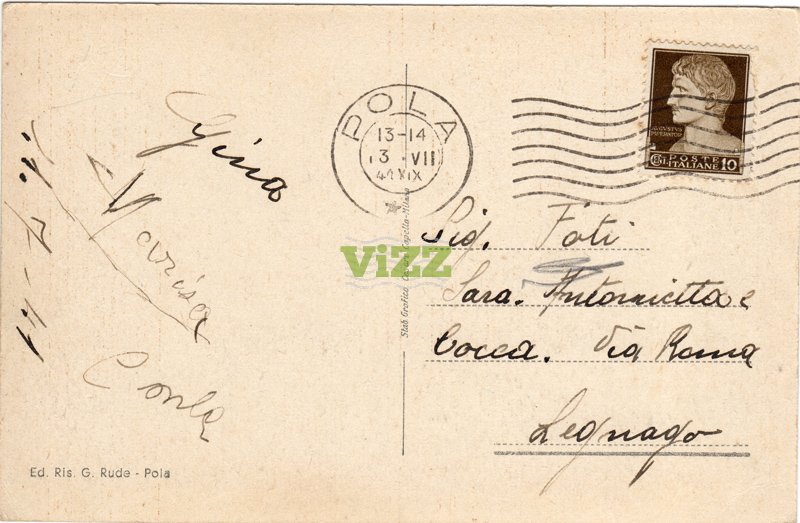 POLA
13-14
3 . VII
41 XIX
AVGVSTVS
IMPERATOR
POSTE
ITALIANE 10
Gina
Marisa
ViZZ
Stab. Grafico Cesare Capello - Milano
Sig. Foti
Sara. Antonietta e
Cocca. Via Roma
Legnago
Ed. Ris. G. Rude - Pola